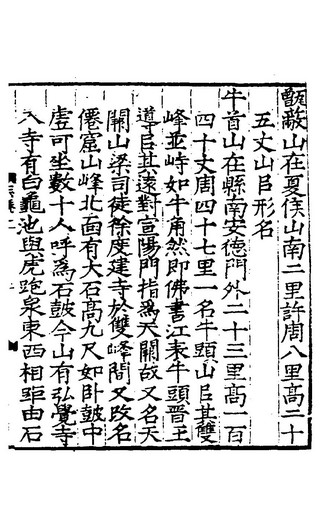 甑蔽山在夏侯山南二里許周八里高二十
五丈山臣形名
牛首山在縣南安德門外二十三里高一百
四十丈周四十七里一名牛頭山臣其雙
峰並峙如牛角然即佛書江表牛頭晉王
導臣其遠對宣陽門指為天闕故又名天
闕山梁司徒徐度建寺於雙峰間又改名
僊窟山峰北面有大石高九尺如卧鼓中
虛可坐數十人呼為石鼓今山有弘覺寺
入寺有白龜池與虎跑泉東西相距由石